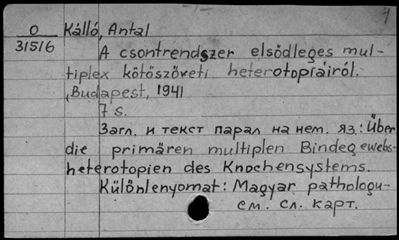 О
31516
Kálló, Antal
A csontrendszer elsődleges mul-
tiplex kötöszöveti heterotopiáiról.
Budapest, 1941
7 s.
Загл. и текст парал на нем. яз.: Über
die primären multiplen Bindegewebs-
heterotopien des Knochensystems.
Különlenyomat: Magyar pathologu-
см. сл. карт.